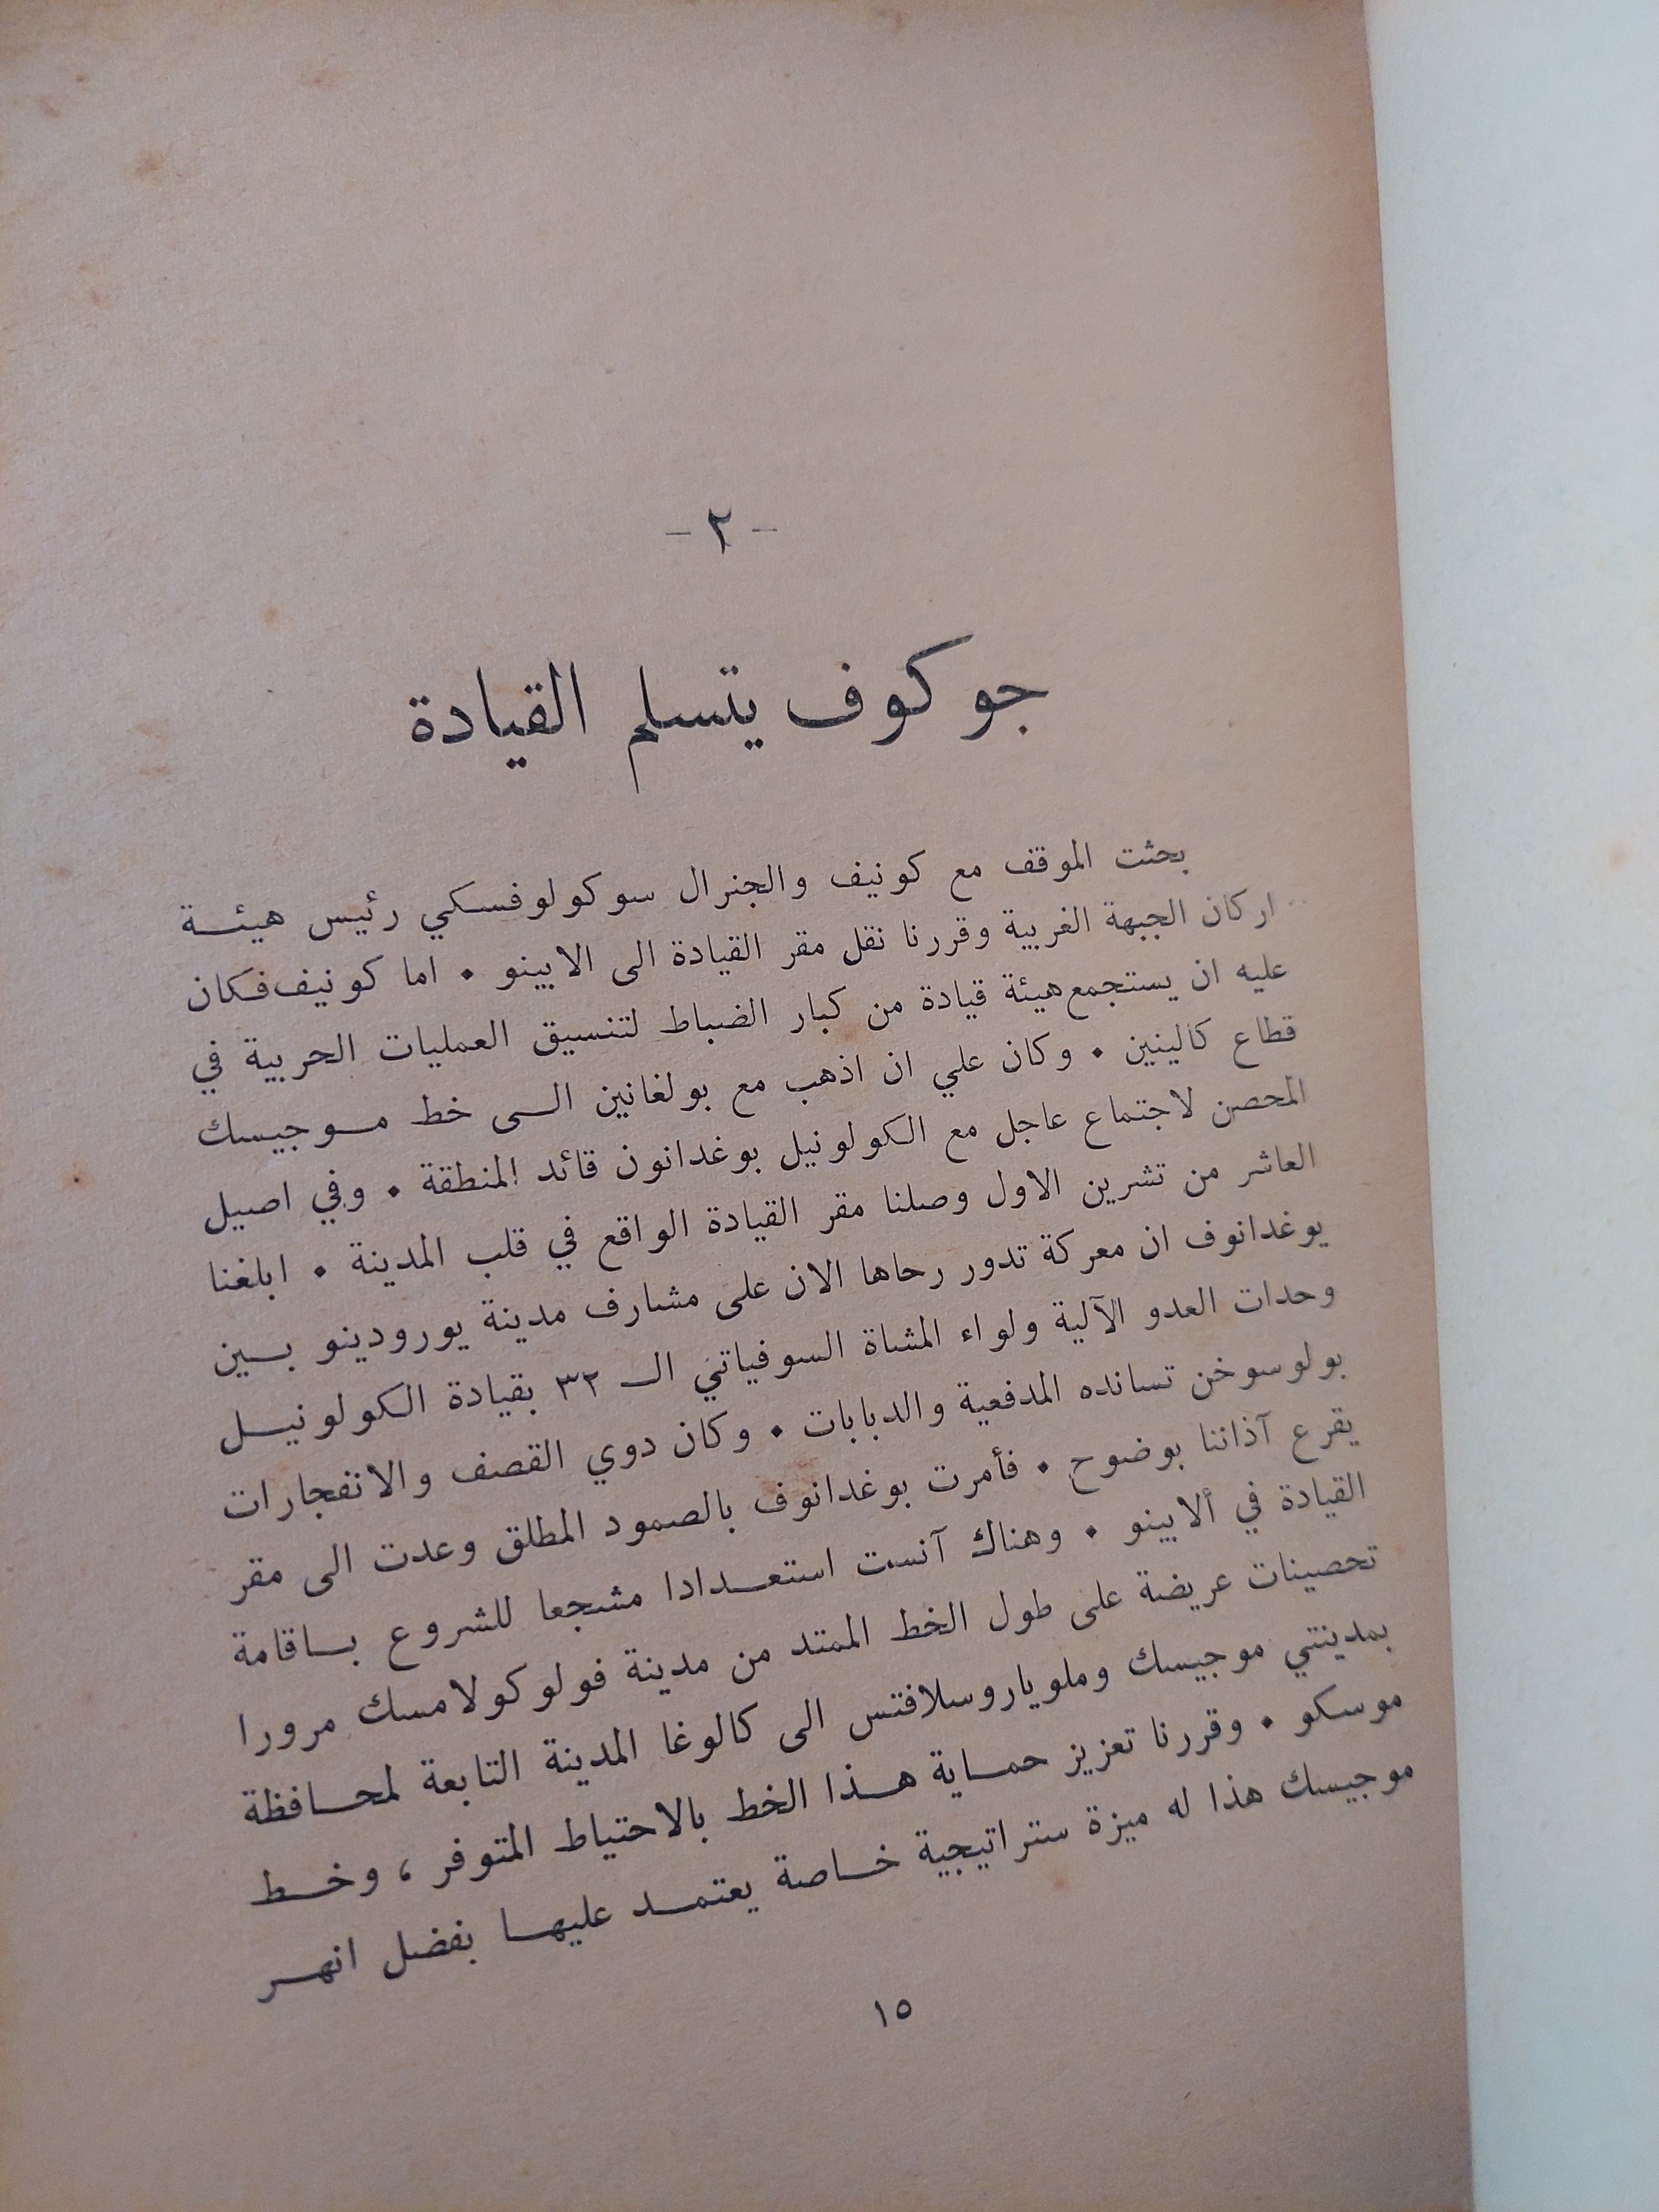 - ٢ -
جوكوف يتسلم القيادة
بحثت الموقف مع كونيف والجنرال سوكولوفسكي رئيس هيئـــة
اركان الجبهة الغربية وقررنا نقل مقر القيادة الى الابينو ٠ اما كونيف فكان
عليه ان يستجمع هيئة قيادة من كبار الضباط لتنسيق العمليات الحربية في
قطاع كالينين ٠ وكان علي ان اذهب مع بولغانين الـــى خط مـــوجيسك
المحصن لاجتماع عاجل مع الكولونيل بوغدانون قائد المنطقة ٠ وفي اصيل
العاشر من تشرين الاول وصلنا مقر القيادة الواقع في قلب المدينة ٠ ابلغنا
يوغدانوف ان معركة تدور رحاها الان على مشارف مدينة يورودينو بـــين
وحدات العدو الآلية ولواء المشاة السوفياتي الـ ٣٢ بقيادة الكولونيـــل
بولوسوخن تسانده المدفعية والدبابات ٠ وكان دوي القصف والانفجارات
يقرع آذاننا بوضوح ٠ فأمرت بوغدانوف بالصمود المطلق وعدت الى مقر
القيادة في ألابينو ٠ وهناك آنست استعـــدادا مشجعا للشروع بـــاقامة
تحصينات عريضة على طول الخط الممتد من مدينة فولوكولامسك مرورا
بمدينتي موجيسك وملوياروسلافتس الى كالوغا المدينة التابعة لمحـــافظة
موسكو ٠ وقررنا تعزيز حمـــاية هـــذا الخط بالاحتياط المتوفر ، وخـــط
موجيسك هذا له ميزة ستراتيجية خـــاصة يعتمـــد عليهـــا بفضل انهـــر
١٥